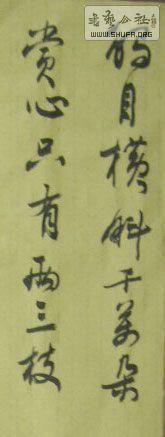 的目横斜千万朵
赏心只有两三枝
書藝公社
WWW.SHUFA.ORG